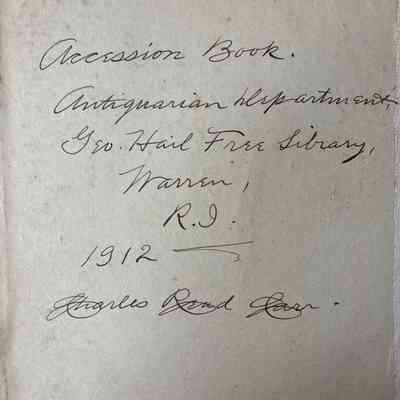 Accession Book.
Antiquarian Department,
Geo. Hail Free Library,
Warren,
R.I.
1912
Charles Read Carr.